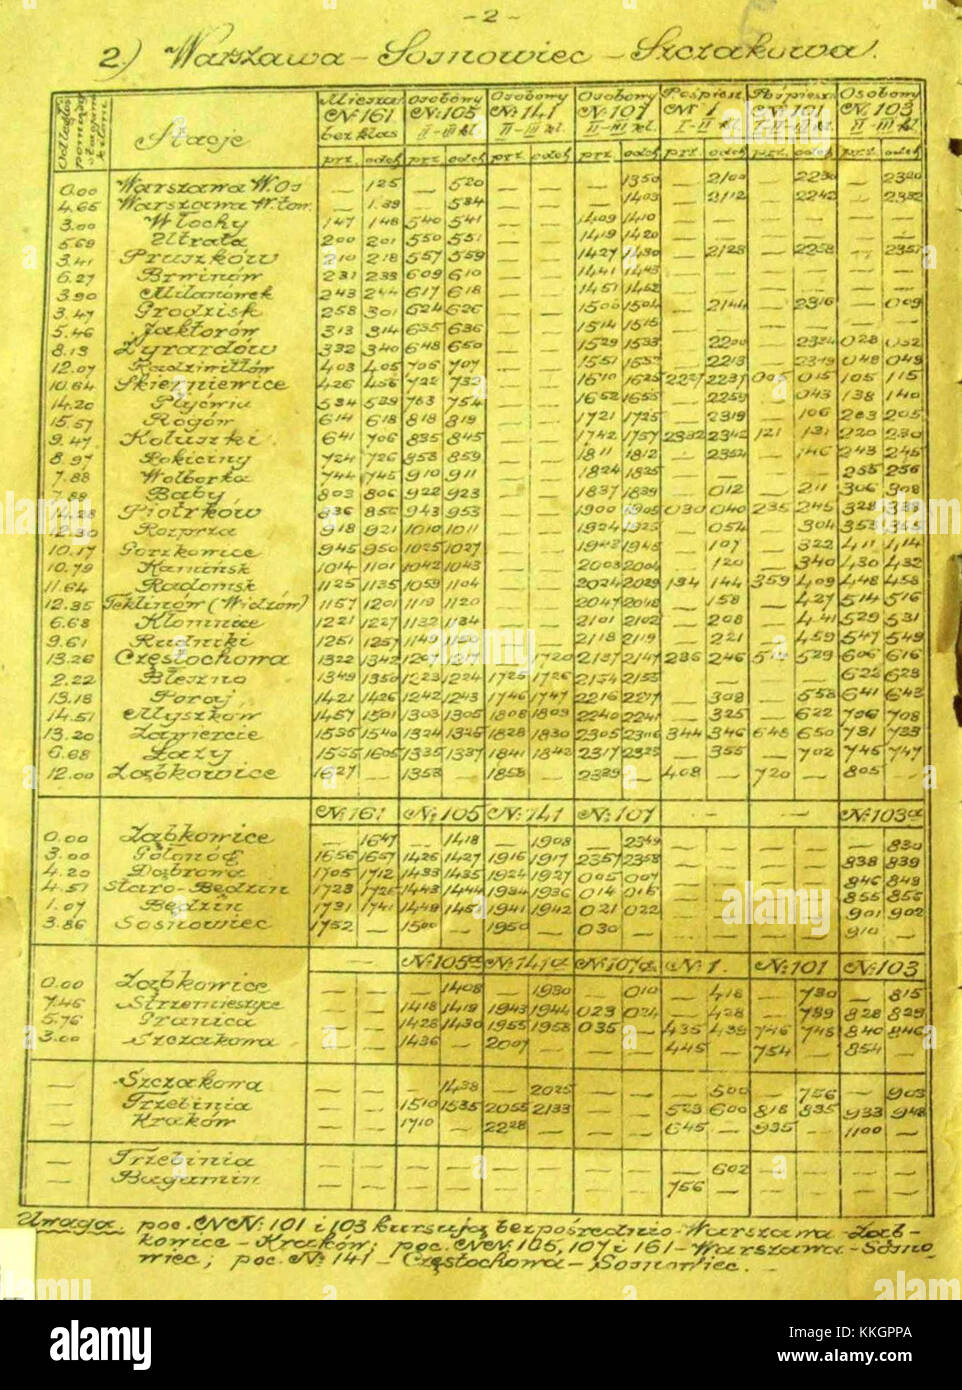 - 2 -
2.) Warszawa - Sosnowiec - Szczakowa.
Odległość pomiędzy stacjami
Stacje
Miesza. Osobowy Osobowy Osobowy Pośpiesz. Pośpiesz. Osobowy
№ 161 № 105 № 141 № 107 № 1 № 101 № 103
bez klas II-III kl. II-III kl. II-III kl. I-II kl. I-II-III kl. II-III kl.
prz. odch prz. odch prz. odch prz. odch prz. odch prz. odch prz. odch
0.00 Warszawa W.Os — 125 — 520 — — — 1350 — 2100 — 2230 — 2320
4.65 Warszawa W.tow. — 1.39 — 534 — — — 1403 — 2112 — 2242 — 2332
3.00 Włochy 147 148 540 541 — — 1409 1410 — — — — — —
5.69 Utrata 200 201 550 551 — — 1419 1420 — — — — — —
3.41 Pruszków 210 218 557 559 — — 1427 1430 — 2128 — 2258 — 2351
6.27 Brwinów 231 233 609 610 — — 1441 1443 — — — — — —
3.90 Milanówek 243 244 617 618 — — 1451 1452 — — — — — —
3.47 Grodzisk 258 301 624 626 — — 1500 1504 — 2144 — 2316 — 009
5.46 Jaktorów 313 314 635 636 — — 1514 1515 — — — — — —
8.13 Żyrardów 332 340 648 650 — — 1529 1533 — 2200 — 2334 028 032
12.07 Radziwiłłów 403 405 705 707 — — 1551 1553 — 2213 — 2349 048 049
10.64 Skierniewice 426 456 722 732 — — 1610 1625 2227 2237 005 015 105 115
14.20 Płyćwia 534 539 753 754 — — 1652 1655 — 2259 — 043 138 140
15.57 Rogów 614 618 818 819 — — 1721 1725 — 2319 — 106 203 205
9.47 Koluszki 641 706 835 845 — — 1742 1757 2332 2342 121 131 220 230
8.97 Rokiciny 724 726 858 859 — — 1811 1812 — 2354 — 146 243 245
7.88 Wolborka 744 745 910 911 — — 1824 1825 — — — — 255 256
7.88 Baby 803 806 922 923 — — 1837 1839 — 012 — 211 306 308
14.28 Piotrków 836 856 943 953 — — 1900 1908 030 040 235 245 328 338
12.30 Rozprza 918 921 1010 1011 — — 1924 1925 — 054 — 304 353 355
10.17 Gorzkowice 945 950 1025 1027 — — 1943 1945 — 107 — 322 411 414
10.79 Kamińsk 1014 1101 1042 1043 — — 2003 2004 — 120 — 340 430 432
11.64 Radomsk 1125 1135 1059 1104 — — 2024 2029 134 144 359 409 448 458
12.35 Teklinów (Widzów) 1157 1201 1119 1120 — — 2047 2048 — 158 — 427 514 516
6.68 Kłomnice 1221 1227 1132 1134 — — 2101 2102 — 208 — 441 529 531
9.61 Rudniki 1251 1257 1149 1150 — — 2118 2119 — 221 — 459 547 549
13.26 Częstochowa 1322 1342 1207 1217 — 1720 2137 2147 236 246 514 529 606 616
2.22 Błeszno 1349 1350 1223 1224 1725 1726 2154 2155 — — — — 622 623
13.18 Poraj 1421 1426 1242 1243 1746 1747 2216 2217 — 308 — 558 641 643
14.51 Myszków 1457 1501 1303 1305 1808 1809 2240 2241 — 325 — 622 706 708
13.20 Zawiercie 1535 1540 1324 1325 1828 1830 2305 2306 344 346 648 650 731 733
6.68 Łazy 1555 1605 1335 1337 1841 1842 2317 2323 — 355 — 702 745 747
12.00 Ząbkowice 1627 — 1353 — 1858 — 2339 — 408 — 720 — 805 —
№ 161 № 105 № 141 № 107 — — № 103a
0.00 Ząbkowice — 1647 — 1418 — 1908 — 2349 — 830
3.00 Gołonóg 1656 1657 1426 1427 1916 1917 2357 2358 838 839
4.20 Dąbrowa 1705 1712 1433 1435 1924 1927 005 007 846 848
4.51 Staro-Będzin 1723 1725 1443 1444 1934 1936 014 016 855 856
1.07 Będzin 1731 1741 1449 1451 1941 1942 021 022 901 902
3.86 Sosnowiec 1752 — 1500 — 1950 — 030 — 910 —
— № 105a № 141a № 107a № 1. № 101 № 103
0.00 Ząbkowice — 1408 — 1930 — 010 — 418 — 730 — 815
7.46 Strzemieszyce 1418 1419 1943 1944 023 024 — 428 — 739 828 829
5.76 Granica 1428 1430 1955 1958 035 — 435 439 746 748 840 846
3.00 Szczakowa 1436 — 2007 — 445 — 754 — 854 —
— Szczakowa — — — 1438 — 2025 — — — 500 — 756 — 903
— Trzebinia — — 1510 1535 2055 2133 — — 523 600 818 835 933 948
— Kraków — — 1710 — 2228 — — — 645 — 935 — 1100 —
— Trzebinia — — — — — — — — — 602 — — — —
— Bogumin — — — — — — — — 756 — — — — —
Uwaga. poc. NN: 101 i 103 kursują bezpośrednio Warszawa-Ząb-
kowice - Kraków; poc. NN. 105, 107 i 161 - Warszawa - Sosno-
wiec; poc. № 141 - Częstochowa - Sosnowiec.
alamy
Image ID: KKGPPA
www.alamy.com